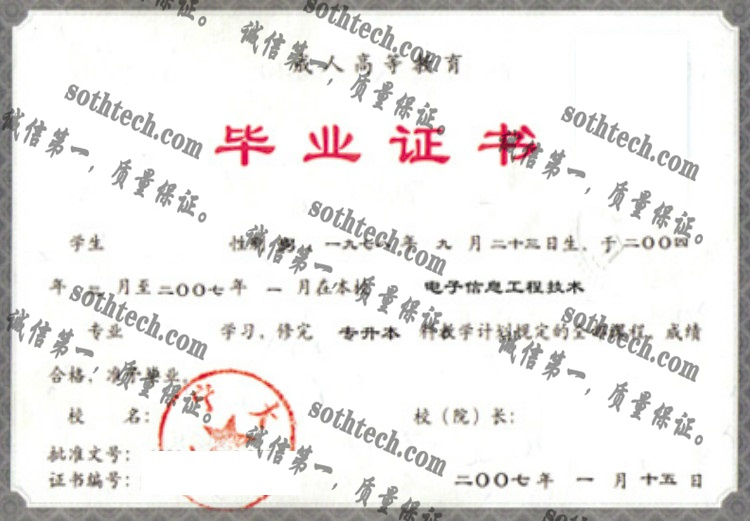 成人高等教育
毕业证书
学生 性别 男，一九七八年 九 月二十三日生，于二〇〇四
年 二 月至二〇〇七年 一 月在本校 电子信息工程技术
专业 学习，修完 专升本 科教学计划规定的全部课程，成绩
合格，准予毕业。
校 名： 校（院）长：
批准文号：
证书编号： 二〇〇七年 一 月 十五 日
sothtech.com
诚信第一，质量保证。
sothtech.com
诚信第一，质量保证。
sothtech.com
诚信第一，质量保证。
sothtech.com
诚信第一，质量保证。
sothtech.com
诚信第一，质量保证。
sothtech.com
诚信第一，质量保证。
sothtech.com
诚信第一，质量保证。